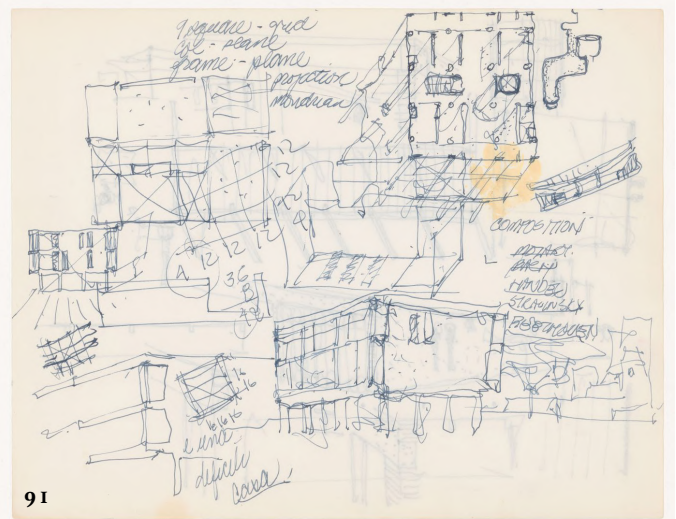 9 square - grid
frame - plane
projection
mondrian
12
12
12
9
12
12
12
A
36
B
48
COMPOSITION
MOZART
BACH
HANDEL
STRAVINSKY
BEETHOVEN
16
16
16 16 16
é una
dificili
cosa!
91